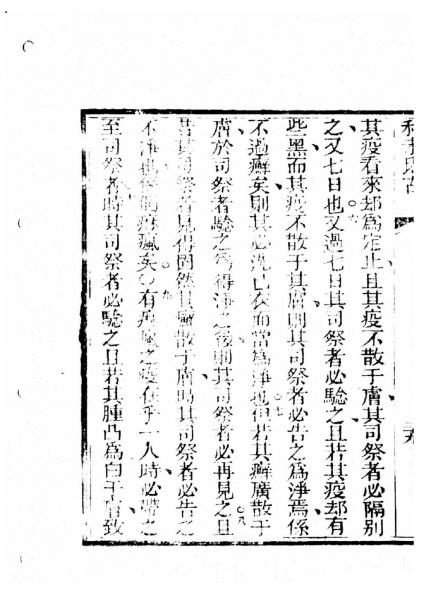 其疫看來却為定止且其疫不散于膚其司祭者必隔別
之又七日也○六又過七日其司祭者必驗之且若其疫却有
些黑而其疫不散于其膚則其司祭者必告之為淨焉係
不過癬矣則其必洗己衣而當為淨也○七但若其癬廣散于
膚於司祭者驗之為得淨之後則其司祭者必再見之且○八
若其司祭者見得固然其癬散于膚時其司祭者必告之
不淨也係瘋矣○九有瘋之疫在乎一人時必帶之
至司祭者時其司祭者必驗之且若其腫凸為白于膚致